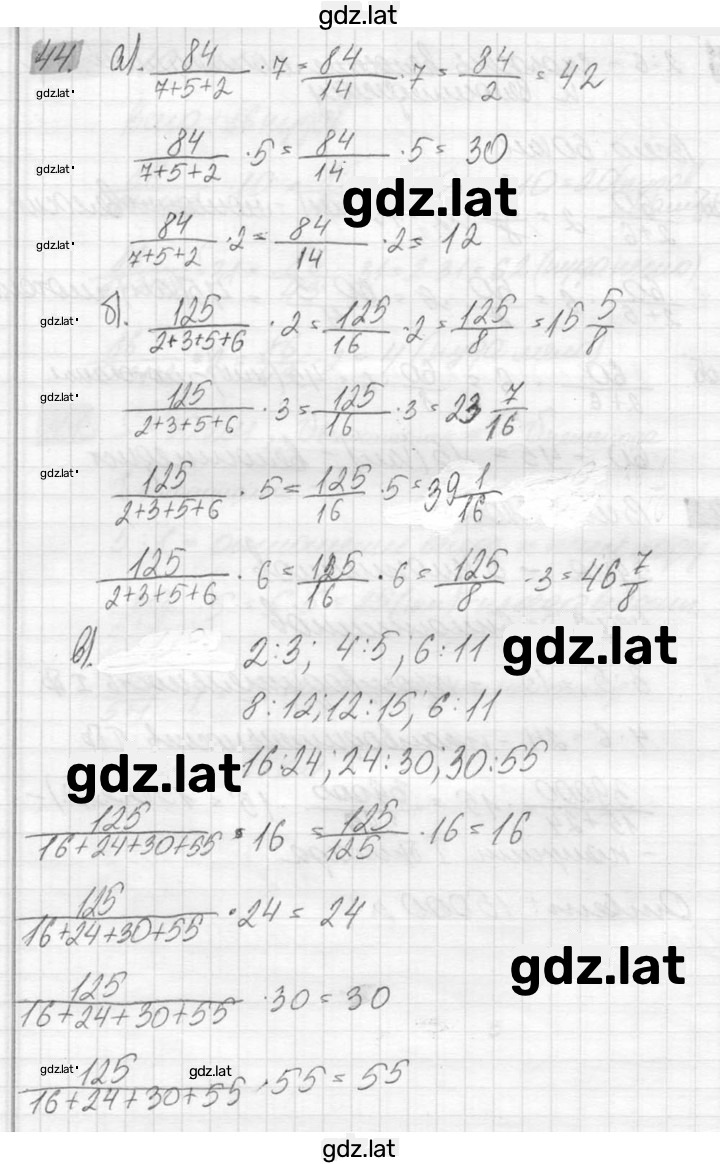 gdz.lat
44. а). 84/(7+5+2) · 7 = 84/14 · 7 = 84/2 = 42
gdz.lat
84/(7+5+2) · 5 = 84/14 · 5 = 30
gdz.lat
gdz.lat
84/(7+5+2) · 2 = 84/14 · 2 = 12
gdz.lat
б). 125/(2+3+5+6) · 2 = 125/16 · 2 = 125/8 = 15 5/8
gdz.lat
125/(2+3+5+6) · 3 = 125/16 · 3 = 23 7/16
gdz.lat
125/(2+3+5+6) · 5 = 125/16 · 5 = 39 1/16
gdz.lat
125/(2+3+5+6) · 6 = 125/16 · 6 = 125/8 · 3 = 46 7/8
в). 2:3; 4:5; 6:11
gdz.lat
8:12; 12:15; 6:11
gdz.lat
16:24; 24:30; 30:55
125/(16+24+30+55) · 16 = 125/125 · 16 = 16
125/(16+24+30+55) · 24 = 24
gdz.lat
125/(16+24+30+55) · 30 = 30
gdz.lat
gdz.lat
125/(16+24+30+55) · 55 = 55
gdz.lat